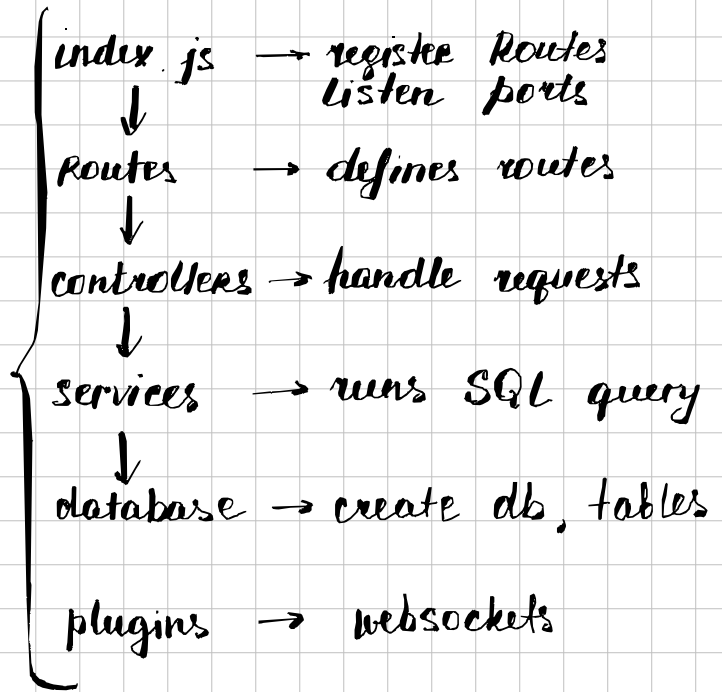 index.js → registee Routes
Listen ports
Routes → defines routes
controllers → handle requests
services → runs SQL query
database → create db, tables
plugins → websockets